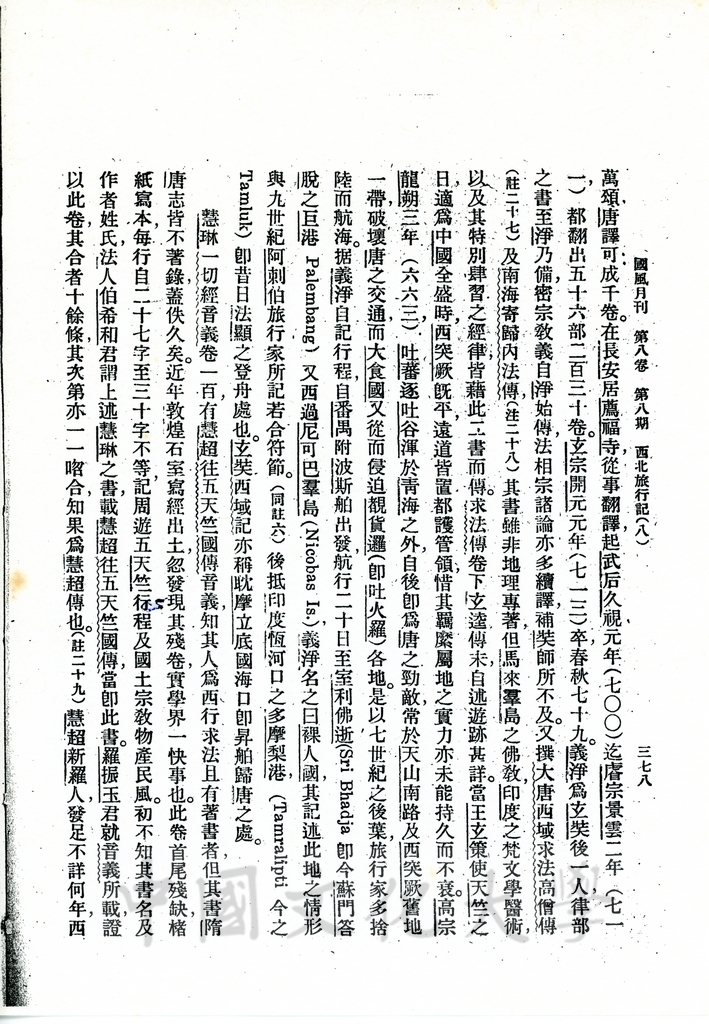 國風月刊 第八卷 第八期 西北旅行記(八) 三七八
萬頌,唐譯可成千卷。在長安居薦福寺從事翻譯,起武后久視元年(七〇〇)迄睿宗景雲二年(七一
一)都翻出五十六部二百三十卷。玄宗開元元年(七一三)卒,春秋七十九。義淨爲玄奘後一人,律部
之書,至淨乃備,密宗敎義,自淨始傳,法相宗諸論,亦多續譯,補奘師所不及。又撰大唐西域求法高僧傳
(註二十七)及南海寄歸內法傳,(註二十八)其書雖非地理專著,但馬來羣島之佛敎,印度之梵文學醫術,
以及其特別肆習之經律,皆藉此二書而傳。求法傳卷下玄逵傳末,自述遊跡甚詳。當王玄策使天竺之
日,適爲中國全盛時,西突厥旣平,遠道皆置都護管領,惜其羈縻屬地之實力亦未能持久而不衰。高宗
龍朔三年(六六三)吐蕃逐吐谷渾於靑海之外,自後卽爲唐之勁敵,常於天山南路及西突厥舊地
一帶,破壞唐之交通,而大食國又從而侵迫覩貨邏(卽吐火羅)各地。是以七世紀之後葉,旅行家多捨
陸而航海。據義淨自記行程,自番禺附波斯舶出發,航行二十日至室利佛逝(Sri Bhadja 卽今蘇門答
脫之巨港 Palembang)又西過尼可巴羣島(Nicobas Is.)義淨名之曰裸人國,其記述此地之情形,
與九世紀阿剌伯旅行家所記若合符節。(同註六)後抵印度恆河口之多摩梨港,(Tamralipti 今之
Tamluk)卽昔日法顯之登舟處也。玄奘西域記亦稱耽摩立底國海口卽昇舶歸唐之處。
慧琳一切經音義卷一百有慧超往五天竺國傳音義,知其人爲西行求法且有著書者,但其書隋
唐志皆不著錄,蓋佚久矣。近年敦煌石室寫經出土,忽發現其殘卷,實學界一快事也。此卷首尾殘缺,楮
紙寫本,每行自二十七字至三十字不等,記周遊五天竺行程及國土宗敎物產民風。初不知其書名及
作者姓氏,法人伯希和君謂上述慧琳之書,載慧超往五天竺國傳,當卽此書。羅振玉君就音義所載證
以此卷,其合者十餘條,其次第亦一一脗合,知果爲慧超傳也。(註二十九)慧超新羅人,發足不詳何年,西
中國文化大學